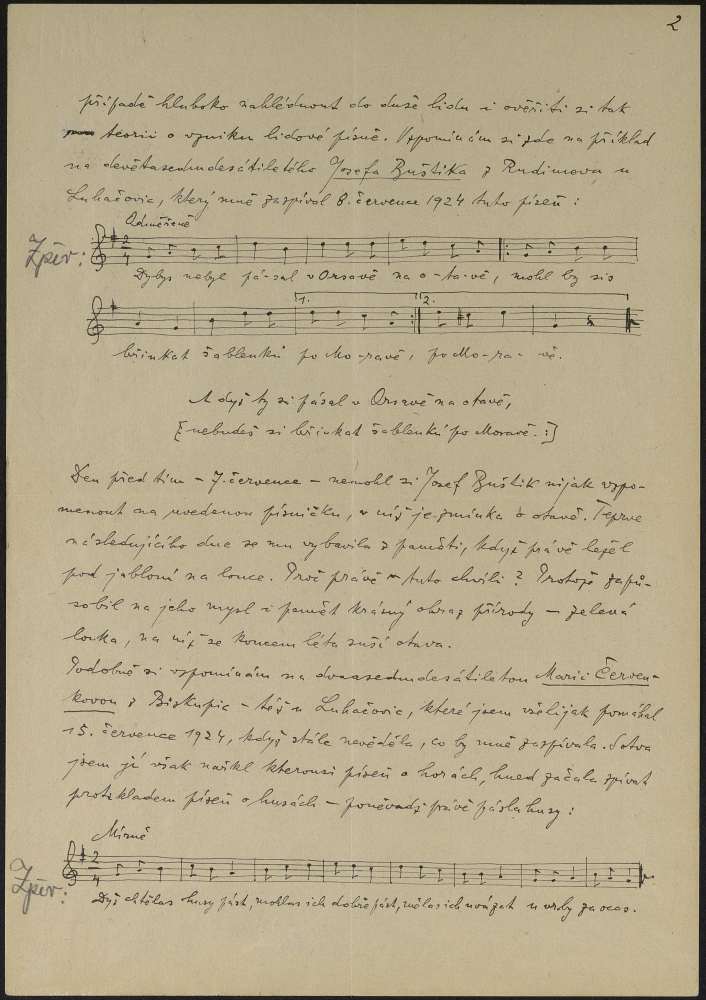 2
případě hluboko nahlédnout do duše lidu i ověřiti si tak
teorii o vzniku lidové písně. Vzpomínám si zde na příklad
na devětasedmdesátiletého Josefa Buštíka z Rudimova u
Luhačovic, který mně zazpíval 8. července 1924 tuto píseň:
Odměřeně
Zpěv:
2
4
Dybys nebyl pá-sal v Orsavě na o-ta-vě, mohl by sis
1. 2.
břinkat šablenkú po Mo-ravě, po Mo-ra- vě.
A dyž ty si pásal v Orsavě na otavě,
[: nebudeš si břinkat šablenkú po Moravě. :]
Den před tím – 7. července – nemohl si Josef Buštík nijak vzpo-
menout na uvedenou písničku, v níž je zmínka o otavě. Teprve
následujícího dne se mu vybavila z paměti, když právě ležel
pod jabloní na louce. Proč právě v tuto chvíli? Protože zapů-
sobil na jeho mysl i paměť krásný obraz přírody – zelená
louka, na níž se koncem léta suší otava.
Podobně si vzpomínám na dvaasedmdesátiletou Marii Červen-
kovou z Biskupic – též u Luhačovic, které jsem všelijak pomáhal
15. července 1924, když stále nevěděla, co by mně zazpívala. Sotva
jsem jí však nařkl kterousi píseň o horách, hned začala zpívat
protikladem píseň o husách – poněvadž právě pásla husy:
Mírně
Zpěv:
2
4
Dyž chtělas husy pást, mohlas ich dobře pást, mělas ich uvázat u vrby za ocas.